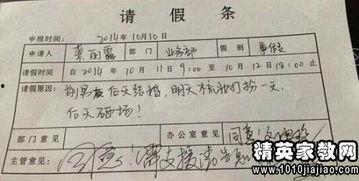 请假条
申报时间: 2014年10月10日
申请人 龚丽露 部门 业务部 假别 事假
请假时间 自2014年10月11日9:00至10月12日18:00止
请假原因: 前男友后天结婚,明天梳妆打扮一天,
后天砸场!
部门意见 办公室意见 同意
主管意见 同意!需支援请告知
精英家教网
www.1010jiajiao.com